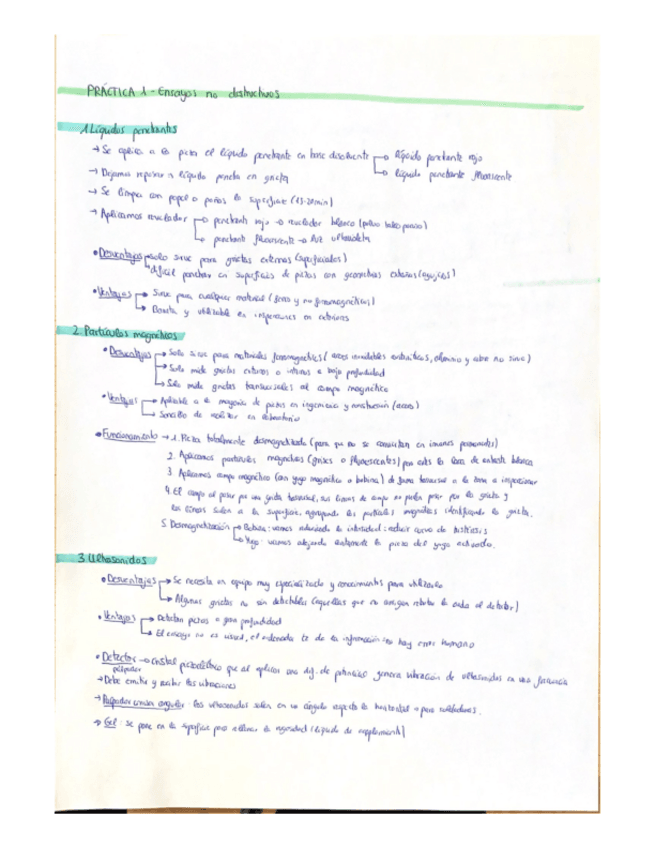 PRÁCTICA 1 - Ensayos no destructivos
1. Líquidos penetrantes
→ Se aplica a la pieza el líquido penetrante en base disolvente → líquido penetrante rojo
→ líquido penetrante fluorescente
→ Dejamos reposar → líquido penetra en grieta
→ Se limpia con papel o paños la superficie (15-20min)
→ Aplicamos revelador → penetrante rojo → revelador blanco (polvo talco)
→ penetrante fluorescente → luz ultravioleta
• Desventajas → solo sirve para grietas externas (superficiales)
→ difícil penetrar en superficies de piezas con geometrías extrañas
• Ventajas → Sirve para cualquier material (ferro y no ferromagnéticos)
→ Barata y utilizable en inspecciones en exteriores
2. Partículas magnéticas
• Desventajas → Solo sirve para materiales ferromagnéticos (aceros inoxidables austeníticos, aluminio y cobre no sirve)
→ Solo mide grietas externas o internas a baja profundidad
→ Solo mide grietas transversales al campo magnético
• Ventajas → Aplicable a la mayoría de piezas en ingeniería y construcción (acero)
→ Sencillo de realizar en laboratorio
• Funcionamiento → 1. Pieza totalmente desmagnetizada (para que no se conviertan en imanes permanentes)
2. Aplicamos partículas magnéticas (grises o fluorescentes) por esto la laca de contraste blanca
3. Aplicamos campo magnético (con yugo magnético o bobina) de forma transversal a la zona a inspeccionar
4. El campo al pasar por una grieta transversal, sus líneas de campo no pueden pasar por la grieta y
las líneas salen a la superficie, agrupando las partículas magnéticas identificando la grieta.
5. Desmagnetización → Bobina: vamos reduciendo la intensidad: reducir curva de histéresis
→ Yugo: vamos alejando lentamente la pieza del yugo activado.
3. Ultrasonidos
• Desventajas → Se necesita un equipo muy especializado y conocimientos para utilizarlo
→ Algunas grietas no son detectables (aquellas que no consigan rebotar la onda al detector)
• Ventajas → Detectan piezas a gran profundidad
→ El ensayo no es visual, el ordenador te da la información: no hay error humano
• Detector → Cristal piezoeléctrico que al aplicar una dif. de potencial genera vibración de ultrasonidos en una frecuencia
palpador
→ Debe emitir y recibir las vibraciones
→ Palpador angular: los ultrasonidos salen en un ángulo respecto la horizontal → para soldaduras.
→ Gel: Se pone en la superficie para eliminar la rugosidad (líquido de acoplamiento)